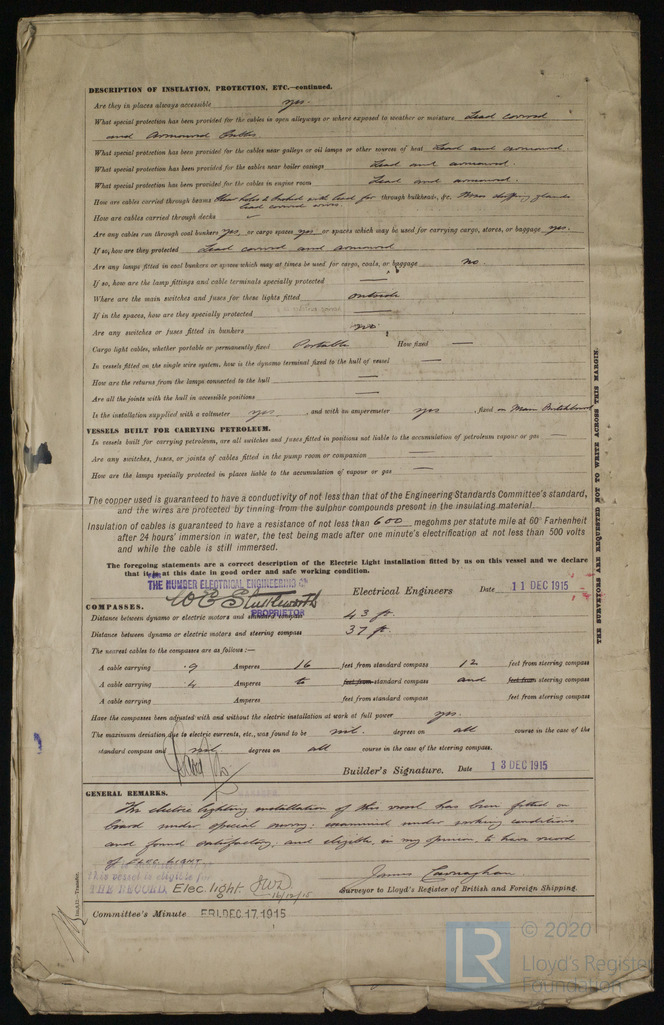 DESCRIPTION OF INSULATION, PROTECTION, ETC.—continued.
Are they in places always accessible yes.
What special protection has been provided for the cables in open alleyways or where exposed to weather or moisture Lead covered
and armoured Cables
What special protection has been provided for the cables near galleys or oil lamps or other sources of heat Lead and armoured.
What special protection has been provided for the cables near boiler casings Lead and armoured.
What special protection has been provided for the cables in engine room Lead and armoured.
How are cables carried through beams holes bushed with lead for through bulkheads, &c. Brass stuffing glands
lead covered wires.
How are cables carried through decks ✓
Are any cables run through coal bunkers yes or cargo spaces yes or spaces which may be used for carrying cargo, stores, or baggage yes.
If so, how are they protected Lead covered and armoured
Are any lamps fitted in coal bunkers or spaces which may at times be used for cargo, coals, or baggage no.
If so, how are the lamp fittings and cable terminals specially protected —
Where are the main switches and fuses for these lights fitted outside
If in the spaces, how are they specially protected —
Are any switches or fuses fitted in bunkers no
Cargo light cables, whether portable or permanently fixed Portable How fixed —
In vessels fitted on the single wire system, how is the dynamo terminal fixed to the hull of vessel —
How are the returns from the lamps connected to the hull —
Are all the joints with the hull in accessible positions —
Is the installation supplied with a voltmeter yes, and with an amperemeter yes, fixed on Main Switchboard
VESSELS BUILT FOR CARRYING PETROLEUM.
In vessels built for carrying petroleum, are all switches and fuses fitted in positions not liable to the accumulation of petroleum vapour or gas —
Are any switches, fuses, or joints of cables fitted in the pump room or companion —
How are the lamps specially protected in places liable to the accumulation of vapour or gas —
The copper used is guaranteed to have a conductivity of not less than that of the Engineering Standards Committee's standard,
and the wires are protected by tinning from the sulphur compounds present in the insulating material.
Insulation of cables is guaranteed to have a resistance of not less than 600 megohms per statute mile at 60° Farhenheit
after 24 hours' immersion in water, the test being made after one minute's electrification at not less than 500 volts
and while the cable is still immersed.
The foregoing statements are a correct description of the Electric Light installation fitted by us on this vessel and we declare
that it is at this date in good order and safe working condition.
THE HUMBER ELECTRICAL ENGINEERING Co
W E Shuttleworth Electrical Engineers Date 11 DEC 1915
PROPRIETOR
COMPASSES.
Distance between dynamo or electric motors and standard compass 43 ft.
Distance between dynamo or electric motors and steering compass 37 ft.
The nearest cables to the compasses are as follows:—
A cable carrying .9 Amperes 16 feet from standard compass 12 feet from steering compass
A cable carrying .4 Amperes to feet from standard compass and feet from steering compass
A cable carrying Amperes feet from standard compass feet from steering compass
Have the compasses been adjusted with and without the electric installation at work at full power yes.
The maximum deviation due to electric currents, etc., was found to be nil. degrees on all course in the case of the
standard compass and nil. degrees on all course in the case of the steering compass.
Builder's Signature. Date 13 DEC 1915
GENERAL REMARKS.
The electric lighting installation of this vessel has been fitted on
board under special survey: examined under working conditions
and found satisfactory: and eligible, in my opinion, to have record
of ELEC LIGHT
This vessel is eligible for
THE RECORD. Elec. light. JWD 16/12/15
James Carnaghan
Surveyor to Lloyd's Register of British and Foreign Shipping.
Committee's Minute FRI. DEC. 17. 1915
THE SURVEYORS ARE REQUESTED NOT TO WRITE ACROSS THIS MARGIN.
Transfer.
LR
© 2020
Lloyd's Register
Foundation